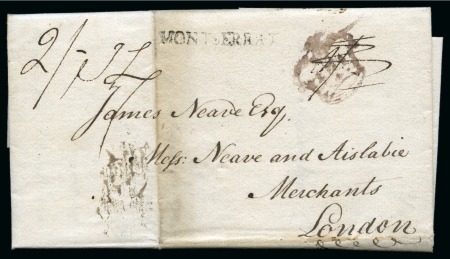 MONTSERRAT
2/
James Neave Esq.
Mess: Neave and Aislabie
Merchants
London